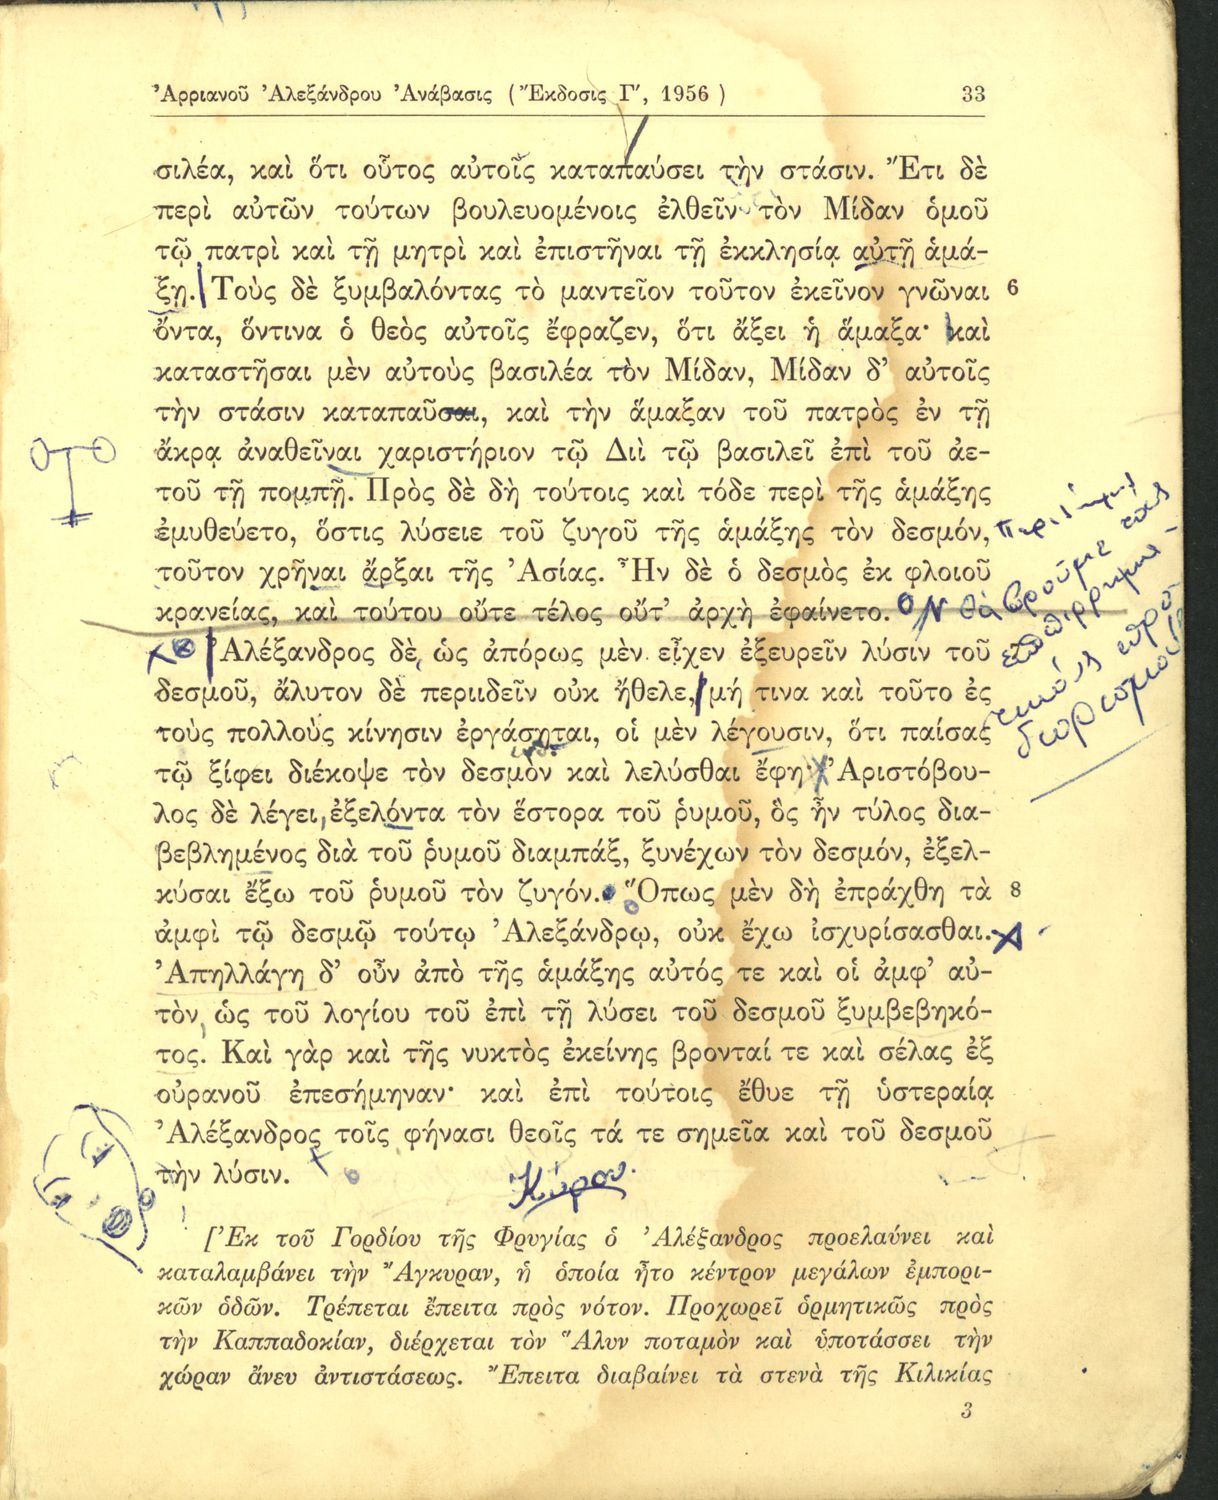 Ἀρριανοῦ Ἀλεξάνδρου Ἀνάβασις (Ἔκδοσις Γ΄, 1956) 33
σιλέα, καὶ ὅτι οὗτος αὐτοῖς καταπαύσει τὴν στάσιν. Ἔτι δὲ
περὶ αὐτῶν τούτων βουλευομένοις ἐλθεῖν τὸν Μίδαν ὁμοῦ
τῷ πατρὶ καὶ τῇ μητρὶ καὶ ἐπιστῆναι τῇ ἐκκλησίᾳ αὐτῇ ἁμά-
ξῃ. Τοὺς δὲ ξυμβαλόντας τὸ μαντεῖον τοῦτον ἐκεῖνον γνῶναι 6
ὄντα, ὅντινα ὁ θεὸς αὐτοῖς ἔφραζεν, ὅτι ἄξει ἡ ἅμαξα· καὶ
καταστῆσαι μὲν αὐτοὺς βασιλέα τὸν Μίδαν, Μίδαν δ’ αὐτοῖς
τὴν στάσιν καταπαῦσαι, καὶ τὴν ἅμαξαν τοῦ πατρὸς ἐν τῇ
ἄκρᾳ ἀναθεῖναι χαριστήριον τῷ Διὶ τῷ βασιλεῖ ἐπὶ τοῦ ἀε-
τοῦ τῇ πομπῇ. Πρὸς δὲ δὴ τούτοις καὶ τόδε περὶ τῆς ἁμάξης
ἐμυθεύετο, ὅστις λύσειε τοῦ ζυγοῦ τῆς ἁμάξης τὸν δεσμόν,
τοῦτον χρῆναι ἄρξαι τῆς Ἀσίας. Ἦν δὲ ὁ δεσμὸς ἐκ φλοιοῦ
κρανείας, καὶ τούτου οὔτε τέλος οὔτ’ ἀρχὴ ἐφαίνετο.
Ἀλέξανδρος δέ, ὡς ἀπόρως μὲν εἶχεν ἐξευρεῖν λύσιν τοῦ
δεσμοῦ, ἄλυτον δὲ περιιδεῖν οὐκ ἤθελε, μή τινα καὶ τοῦτο ἐς
τοὺς πολλοὺς κίνησιν ἐργάσηται, οἱ μὲν λέγουσιν, ὅτι παίσας
τῷ ξίφει διέκοψε τὸν δεσμὸν καὶ λελύσθαι ἔφη· Ἀριστόβου-
λος δὲ λέγει ἐξελόντα τὸν ἕστορα τοῦ ῥυμοῦ, ὃς ἦν τύλος δια-
βεβλημένος διὰ τοῦ ῥυμοῦ διαμπάξ, ξυνέχων τὸν δεσμόν, ἐξελ-
κύσαι ἔξω τοῦ ῥυμοῦ τὸν ζυγόν. Ὅπως μὲν δὴ ἐπράχθη τὰ 8
ἀμφὶ τῷ δεσμῷ τούτῳ Ἀλεξάνδρῳ, οὐκ ἔχω ἰσχυρίσασθαι.
Ἀπηλλάγη δ’ οὖν ἀπὸ τῆς ἁμάξης αὐτός τε καὶ οἱ ἀμφ’ αὐ-
τὸν ὡς τοῦ λογίου τοῦ ἐπὶ τῇ λύσει τοῦ δεσμοῦ ξυμβεβηκό-
τος. Καὶ γὰρ καὶ τῆς νυκτὸς ἐκείνης βρονταί τε καὶ σέλας ἐξ
οὐρανοῦ ἐπεσήμηναν· καὶ ἐπὶ τούτοις ἔθυε τῇ ὑστεραίᾳ
Ἀλέξανδρος τοῖς φήνασι θεοῖς τά τε σημεῖα καὶ τοῦ δεσμοῦ
τὴν λύσιν.
Κύρου
[Ἐκ τοῦ Γορδίου τῆς Φρυγίας ὁ Ἀλέξανδρος προελαύνει καὶ
καταλαμβάνει τὴν Ἄγκυραν, ἡ ὁποία ἦτο κέντρον μεγάλων ἐμπορι-
κῶν ὁδῶν. Τρέπεται ἔπειτα πρὸς νότον. Προχωρεῖ ὁρμητικῶς πρὸς
τὴν Καππαδοκίαν, διέρχεται τὸν Ἅλυν ποταμὸν καὶ ὑποτάσσει τὴν
χώραν ἄνευ ἀντιστάσεως. Ἔπειτα διαβαίνει τὰ στενὰ τῆς Κιλικίας
3
θὰ βροῦμε τοὺς